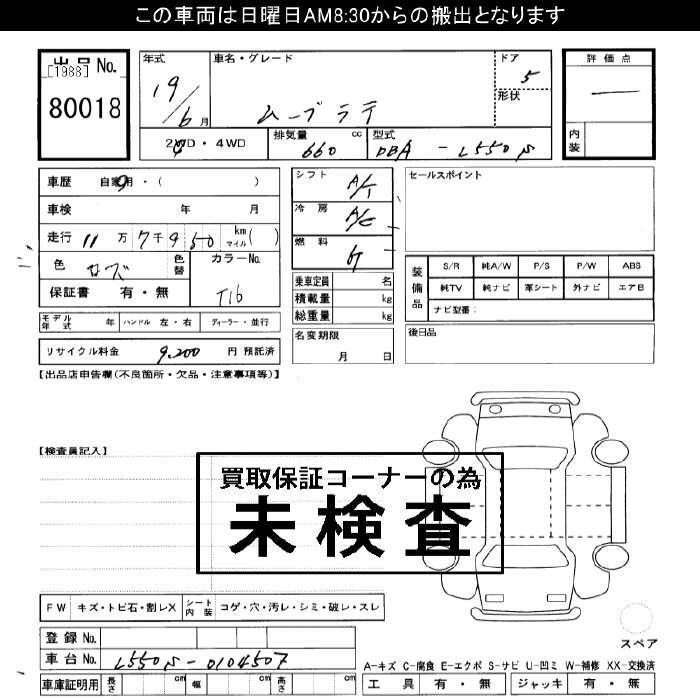 この車両は日曜日AM8:30からの搬出となります
出品No.
[1988]
80018
年式
19/6月
車名・グレード
ムーブラテ
ドア
5
形状
評価点
内装
2WD・4WD
排気量 cc
660
型式
DBA-L550S
車歴 自家用・( )
車検 年 月
走行 11万7千9 50 km マイル( )
色
色替
カラーNo.
T16
保証書 有・無
モデル年式 年 ハンドル 左・右 ディーラー・並行
リサイクル料金 9,200 円 預託済
シフト A/T
冷房 A/C
燃料
乗車定員 名
積載量 kg
総重量 kg
名変期限
月 日
セールスポイント
装備品
S/R 純A/W P/S P/W ABS
純TV 純ナビ 革シート 外ナビ エアB
ナビ型番:
後日品
【出品店申告欄(不良箇所・欠品・注意事項等)】
【検査員記入】
買取保証コーナーの為
未検査
FW キズ・トビ石・割レX シート内装 コゲ・穴・汚レ・シミ・破レ・スレ
登録No.
車台No. L550S-0104507
車庫証明用 長さ cm 幅 cm 高さ cm
スペア
A-キズ C-腐食 E-エクボ S-サビ U-凹ミ W-補修 XX-交換済
工具 有・無 ジャッキ 有・無